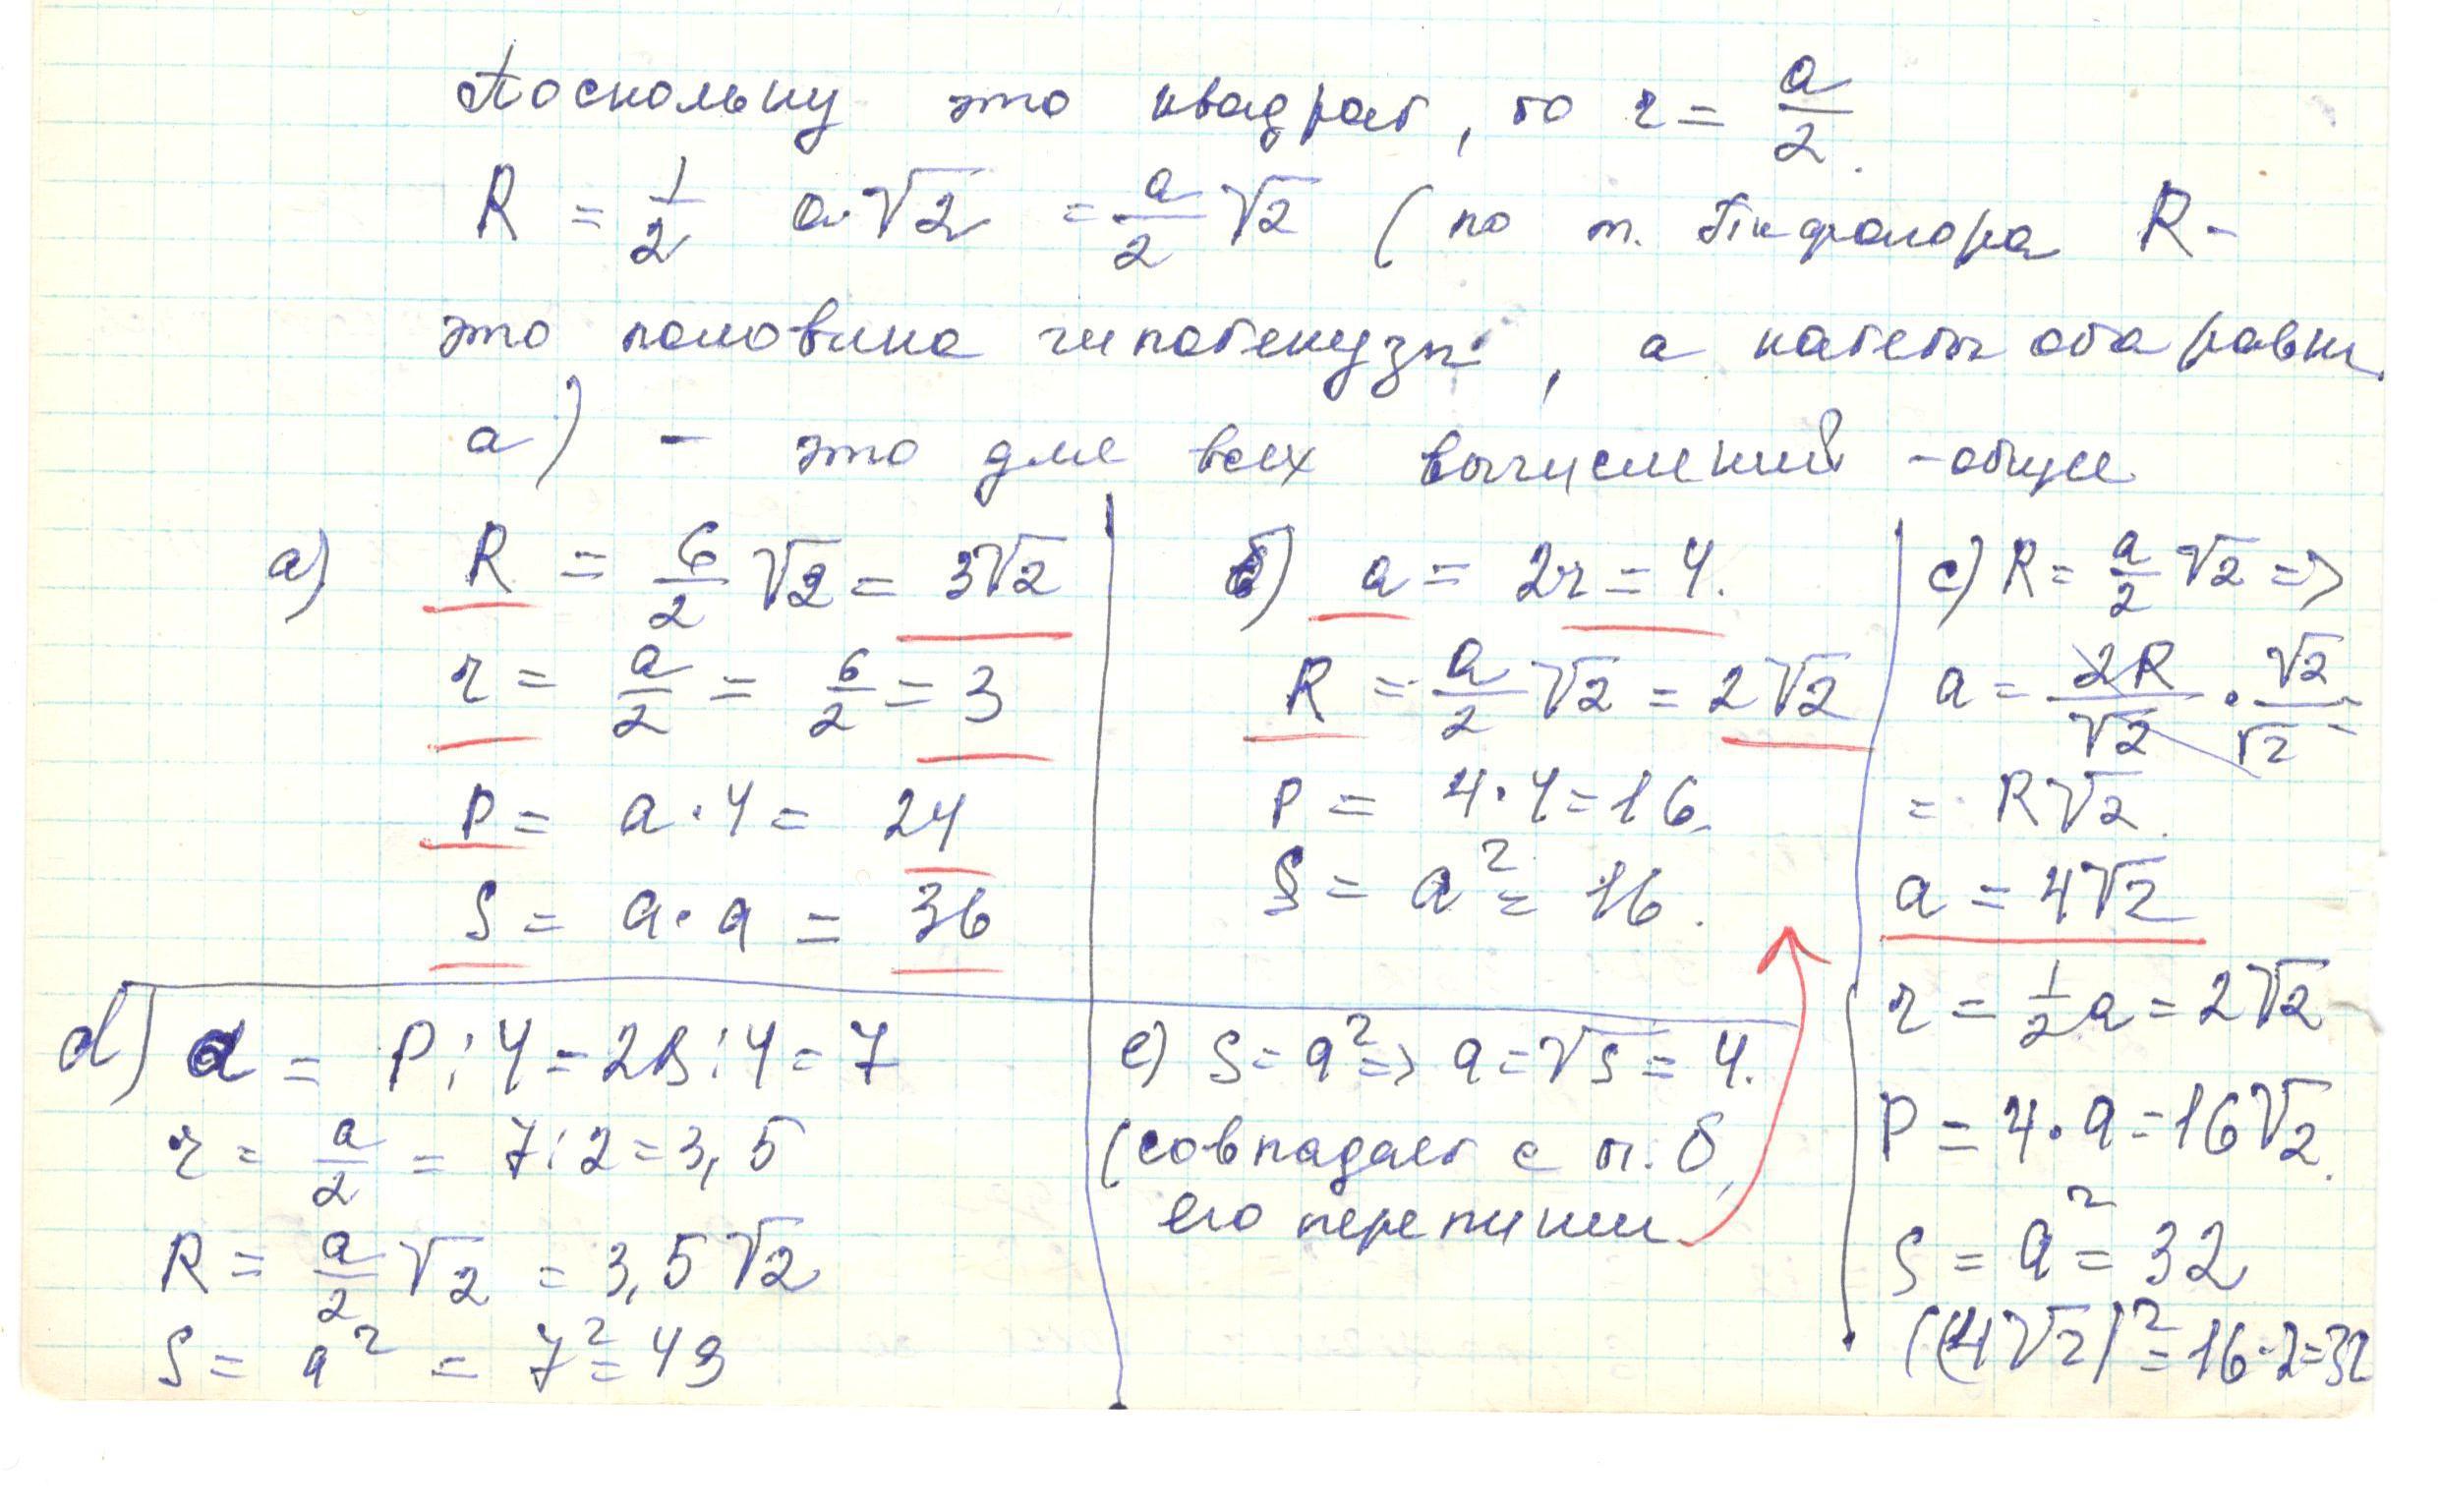 Поскольку это квадрат, то r = a/2.
R = 1/2 a·√2 = a/2 √2 (по т. Пифагора R -
это половина гипотенузы, а катеты оба равны
a) - это для всех вычислений - общее
a) R = 6/2 √2 = 3√2
r = a/2 = 6/2 = 3
P = a·4 = 24
S = a·a = 36
б) a = 2r = 4.
R = a/2 √2 = 2√2
P = 4·4 = 16.
S = a² = 16.
c) R = a/2 √2 =>
a = 2R/√2 · √2/√2 =
= R√2.
a = 4√2
r = 1/2 a = 2√2
P = 4·a = 16√2.
S = a² = 32
((4√2)² = 16·2=32
d) a = P:4 = 28:4 = 7
r = a/2 = 7:2 = 3,5
R = a/2 √2 = 3,5√2
S = a² = 7² = 49
e) S = a² => a = √S = 4.
(совпадает с п. б,
его перепиши